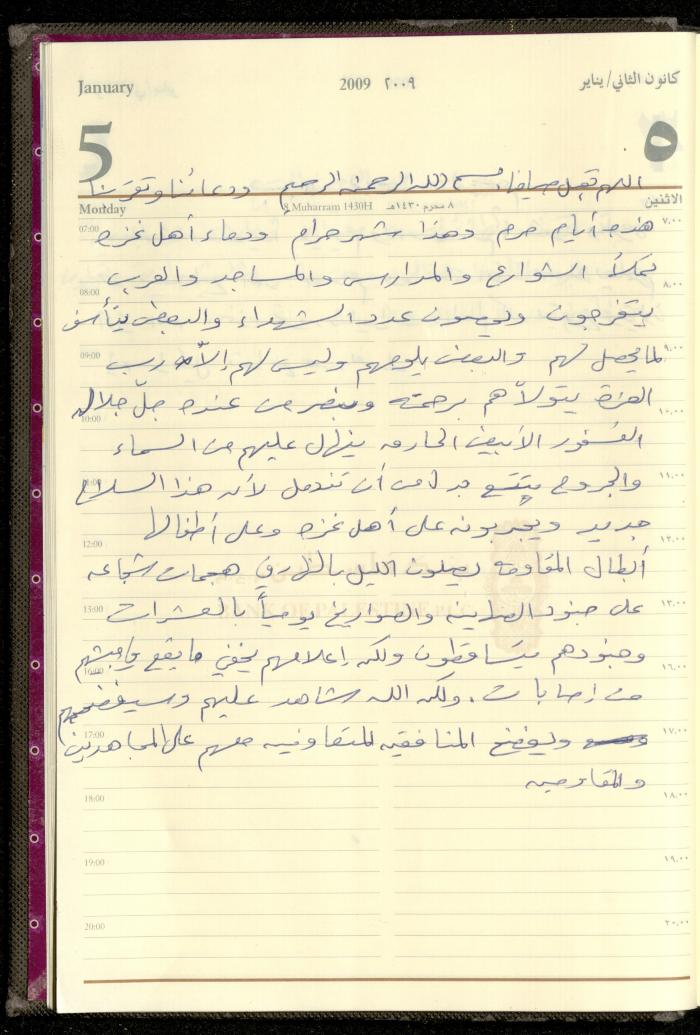 January 2009 ٢٠٠٩ كانون الثاني/يناير
5 ٥
اللهم تقبل صيامنا بسم الله الرحمن الرحيم ودعائنا وتقربنا
Monday 8 Muharram 1430H ٨ محرم ١٤٣٠هـ الاثنين
07:00 هذه أيام حرم وهذا شهر حرام ودماء أهل غزة ٧,٠٠
تملأ الشوارع والمدارس والمساجد والعرب
08:00 ٨,٠٠
يتفرجون ويحصون عدد الشهداء والبعض يتأسف
09:00 لما يحصل لهم والبعض يلومهم وليس لهم إلا رب ٩,٠٠
العزة يتولاهم برحمته وبنصر من عنده جلّ جلاله
10:00 ١٠,٠٠
الفسفور الأبيض الحارق ينهال عليهم من السماء
11:00 والجروح تتسع بدل من أن تندمل لأن هذا السلاح ١١,٠٠
جديد ويجربونه على أهل غزة وعلى أطفالها
12:00 ١٢,٠٠
أبطال المقاومة يصلون الليل بالنهار في هجمات شجاعة
BANK OF PALESTINE PLC
13:00 على جنود الصهاينة والصواريخ يومياً بالعشرات ١٣,٠٠
وجنودهم يتساقطون ولكن إعلامهم يخفي ما يقع بجيشهم
16:00 ١٦,٠٠
من إصابات. ولكن الله شاهد عليهم وسيفضحهم
17:00 ويفضح المنافقين المتعاونين معهم على المجاهدين ١٧,٠٠
والمقاومين
18:00 ١٨,٠٠
19:00 ١٩,٠٠
20:00 ٢٠,٠٠